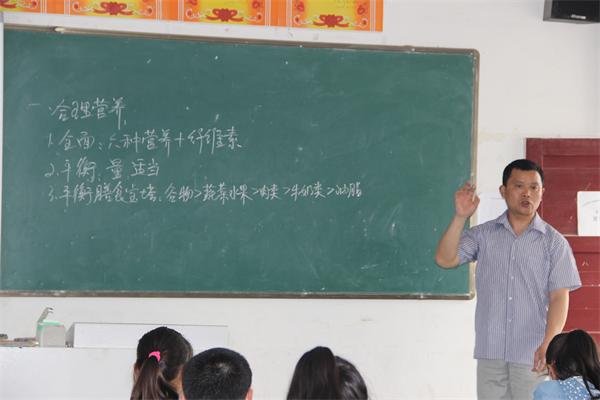 一、合理营养
1.全面：六种营养+纤维素
2.平衡：量适当
3.平衡膳食宝塔：谷物>蔬菜水果>肉类>牛奶类>油脂